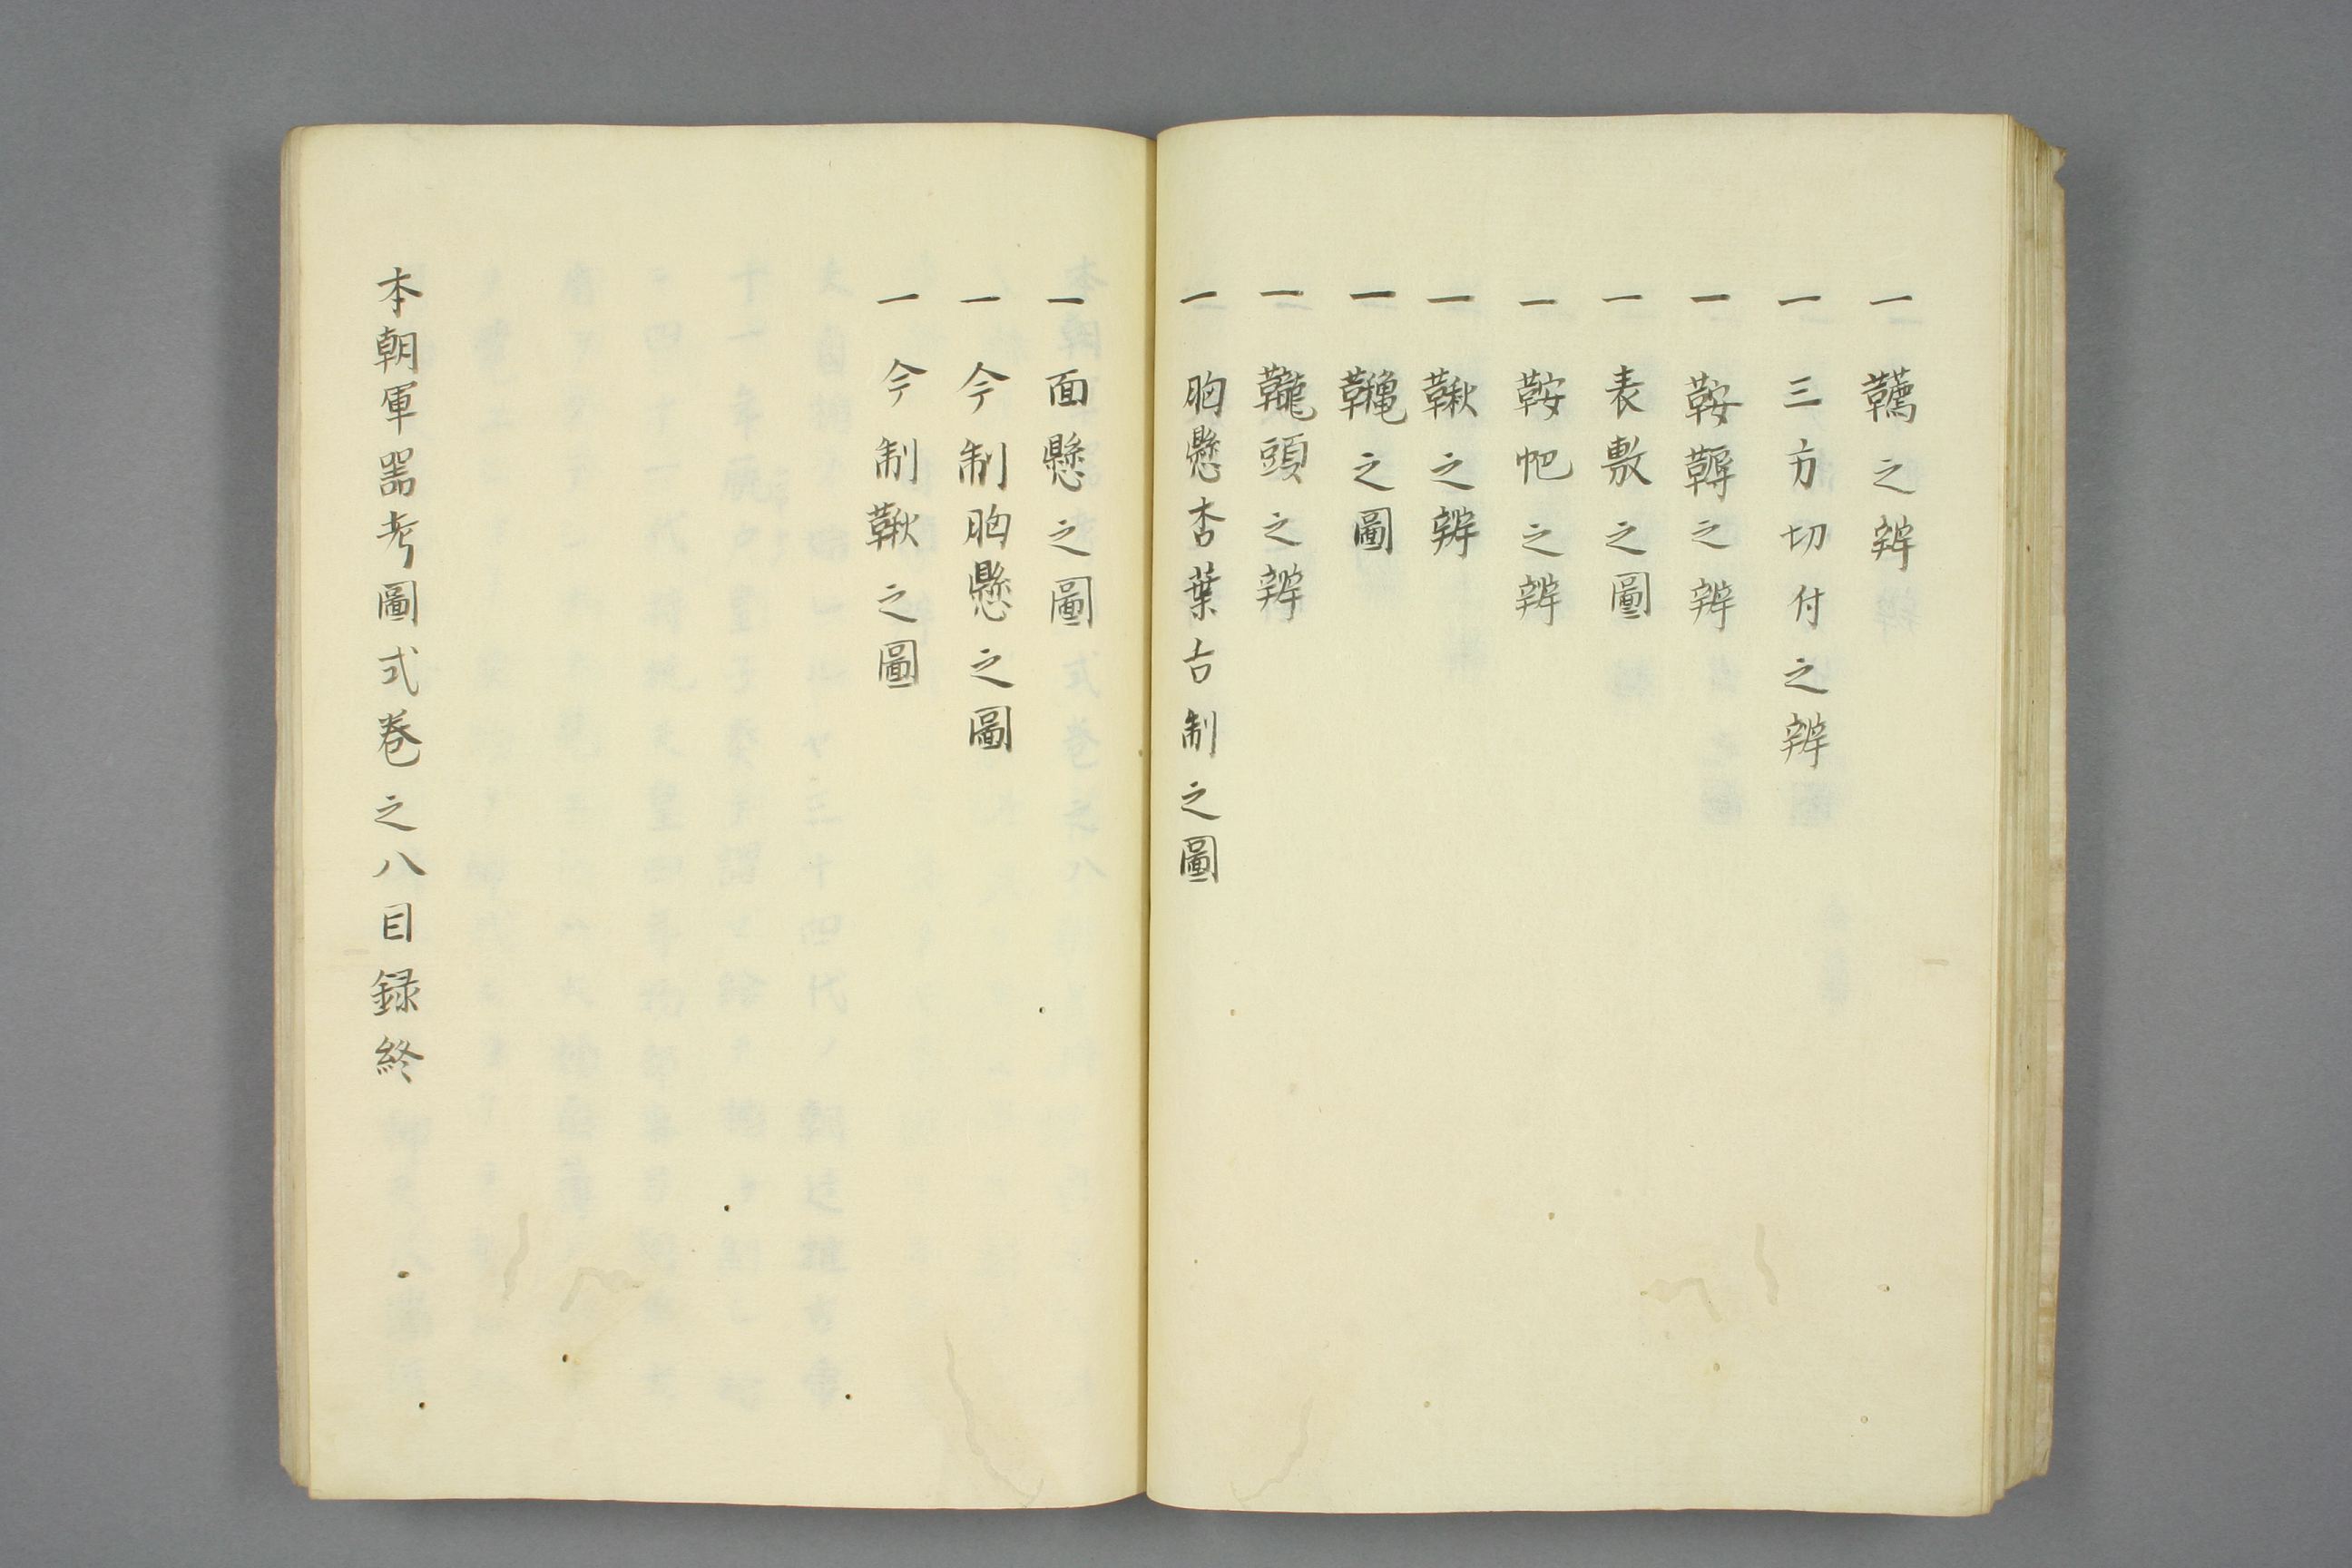 一 韉之辨
一 三方切付之辨
一 鞍褥之辨
一 表敷之圖
一 鞍帊之辨
一 鞦之辨
一 之圖
一 頭之辨
一 胸懸杏葉古制之圖
一 面懸之圖
一 今制胸懸之圖
一 今制鞦之圖
本朝軍器考圖式巻之八目録終